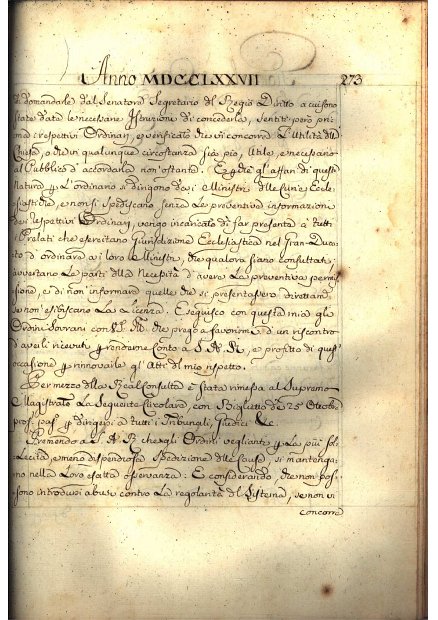 Anno MDCCLXXVII 273
di domandarle dal Senatore Segretario del Regio Diritto a cui sono
state date le necessarie Istruzioni di concederla, sentiti però pri
ma i respettivi Ordinarj, e verificato che vi concorra l'Utilità della
Chiesa, o che in qualunque circostanza sia pio, utile, e necessario
al Pubblico d'accordarla non ostante. E perche gl'affari di questa
Natura p l'ordinario si dirigono dai Ministri delle Curie Eccle
siastiche, e non si spediscano senza le preventive informazioni
dei respettivi Ordinarj, vengo incaricato di far presente a tutti
i Prelati che esercitano Giurisdizione Ecclesiastica nel Gran-Duca
to d'ordinare ai loro Ministri, che qualora siano consultati
avvertano le parti della necessità d'avere la preventiva permis
sione, e di non informare quelle che si presentassero direttam.
se non esibiscano la Licenza. Eseguisco con questa mia gli
Ordini Sovrani con V.S. che prego a favorirmi d'un riscontro
d'averli ricevuti p renderne Conto a S. A. R., e profitto di quest'
occasione p rinnovarle gli Atti del mio rispetto.
Per mezzo della Real Consulta è stata rimessa al Supremo
Magistrato la seguente Circolare, con Biglietto de' 25 Ottobre
pros. pas. p dirigersi a tutti i Tribunali, Giudici &c.
Premendo a S. A. R. che gli Ordini veglianti p la più sol
lecita, e meno dispendiosa spedizione delle Cause, si mantenga
no nella loro esatta osservanza. E considerando, che non pos
sono introdursi abusi contro la regolarità del Sistema, se non vi
concorre